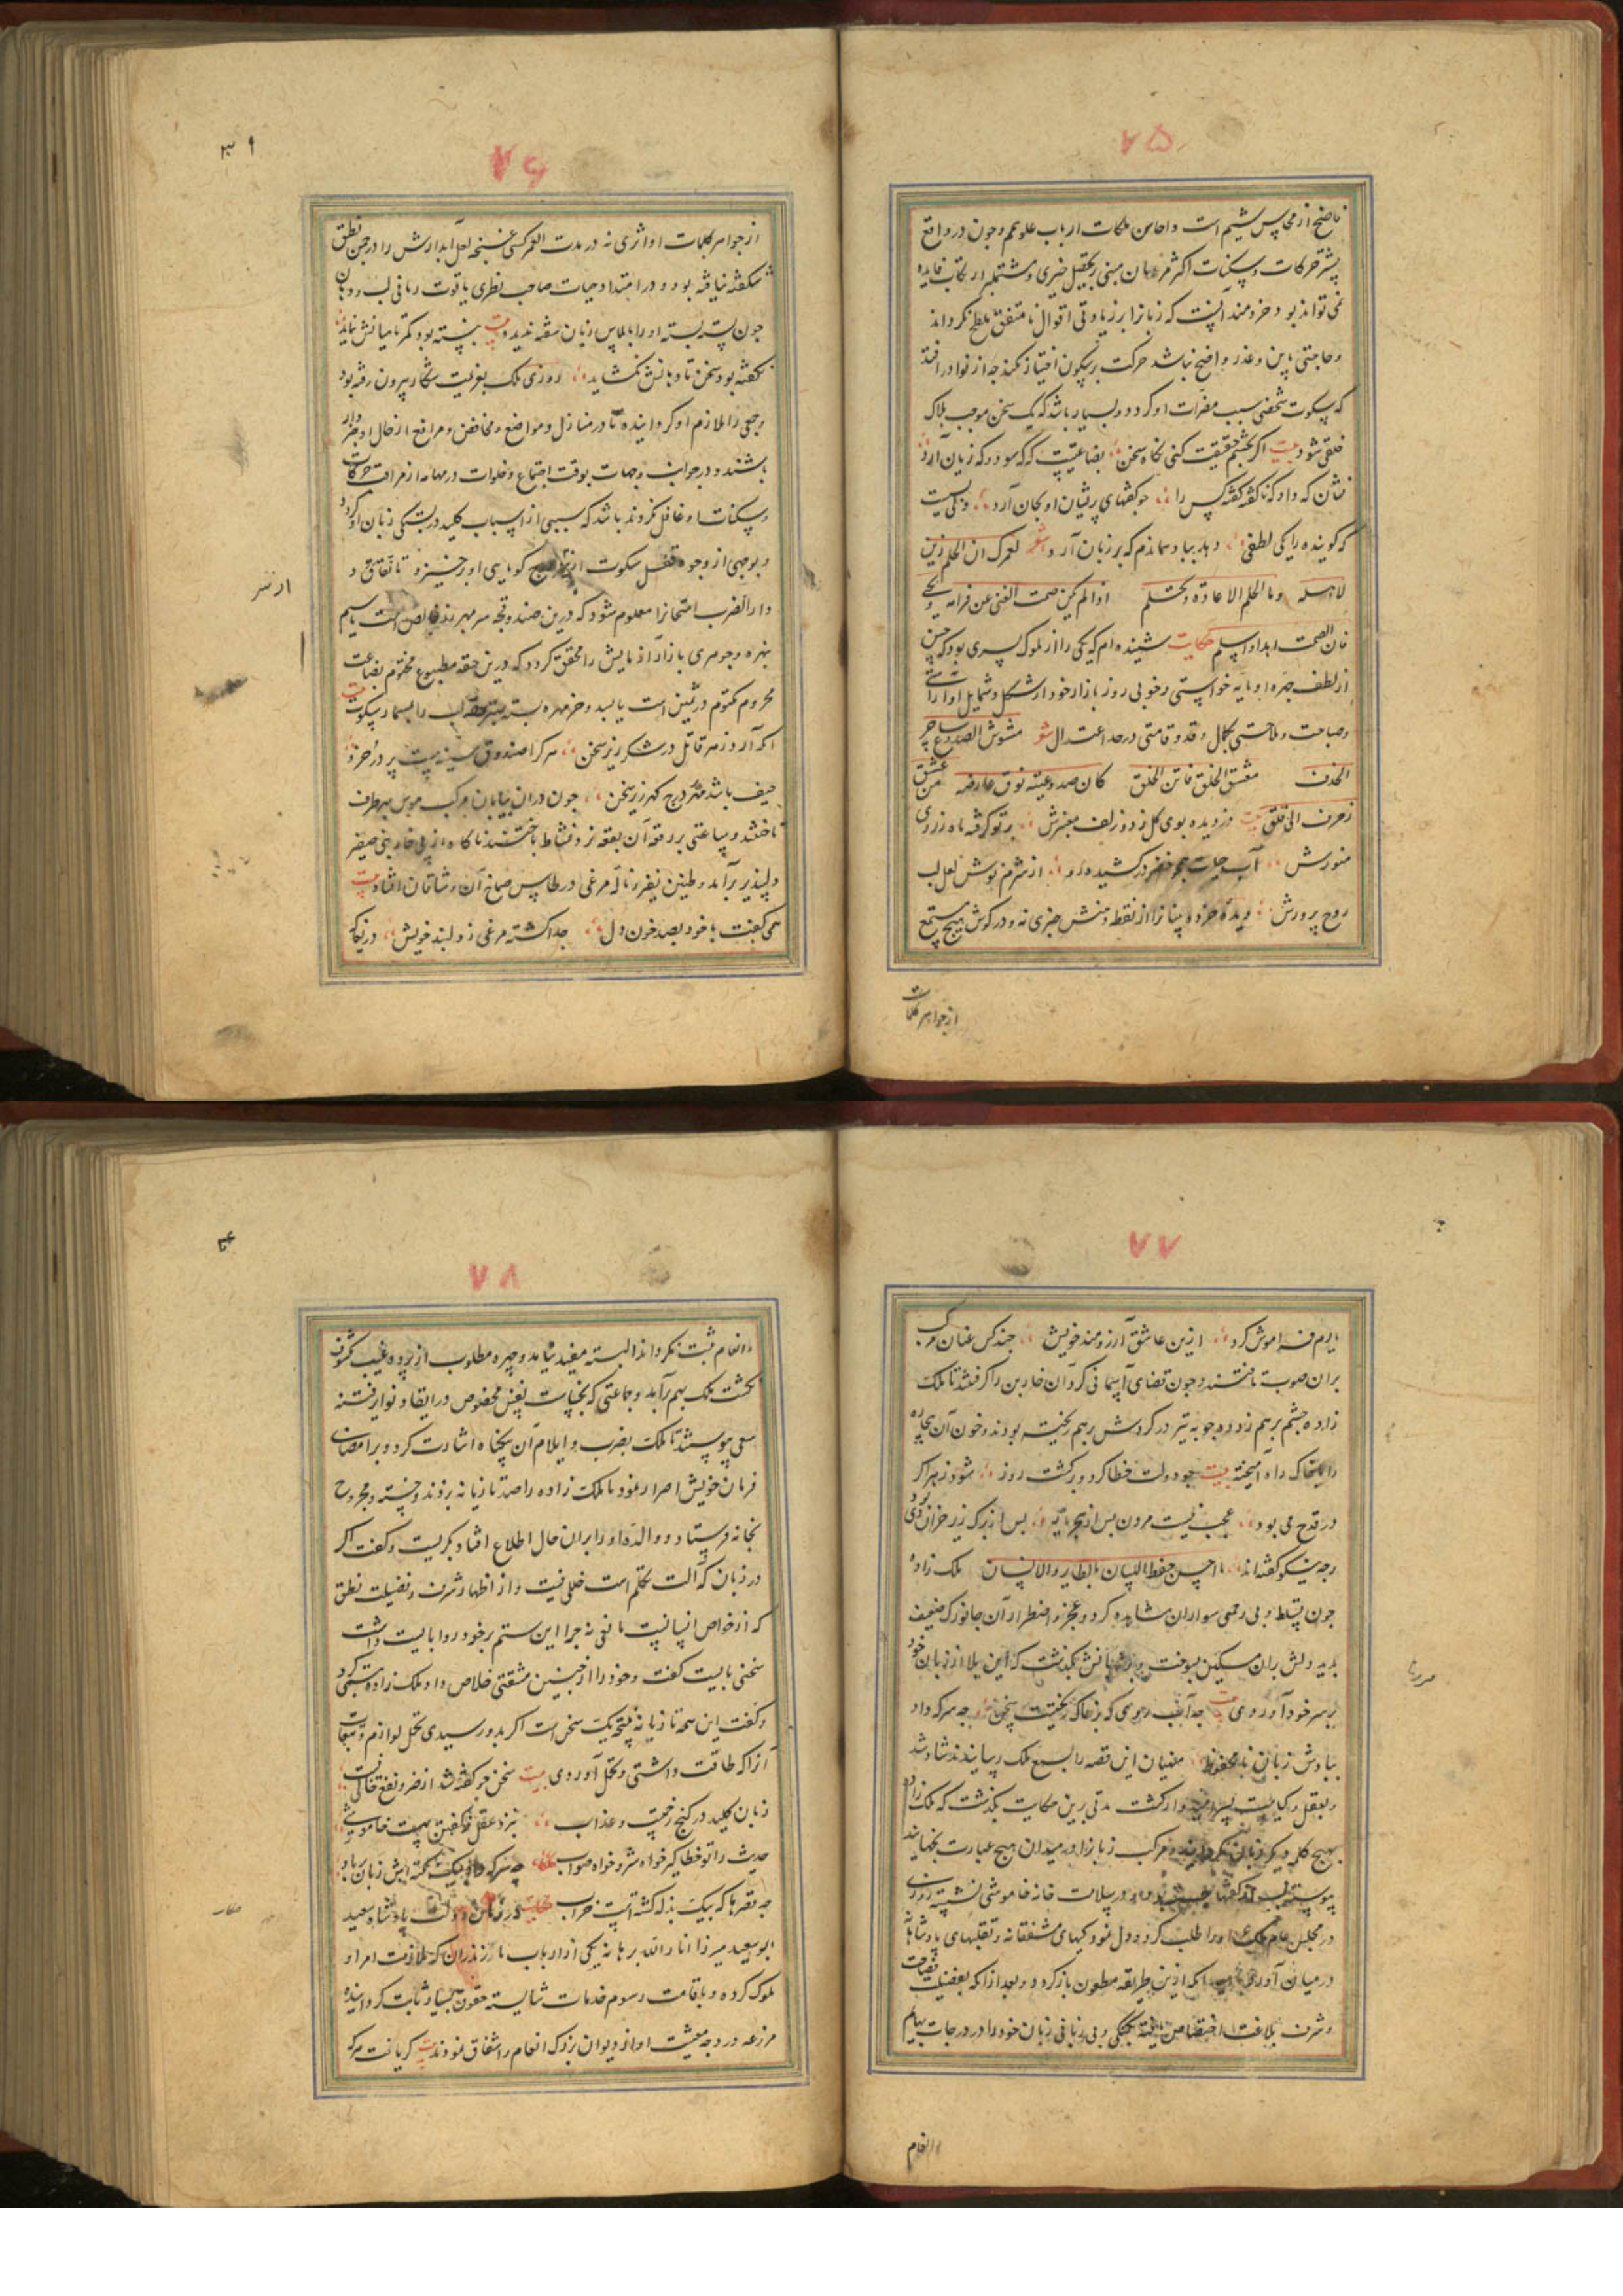 ۷۵
ناصح از محاسن شیم است و احاسن ملکات ارباب علو همم و چون در واقع
بیشتر حرکات و سکنات اکثر مردمان مبنی بر تحصیل خیری و مستتبع ارتکاب فایده
نمی تواند بود و خردمند آنست که زبانرا بر زیادتی اقوال نامتفق بلطح نکرداند
و حاجتی باین و عذر واضح نباشد حرکت بر سکون اختیار نکند چه از نوادر افتد
که سکوت شخصی سبب مضرات او کردد و بسیار باشد که یک سخن موجب هلاک
خلقی شود بیت اکر بچشم حقیقت کنی نکاه سخن بضاعتیست که که سود و که زیان آرد
نشان که داد که ناکفته کفته کس را چو کفتهای پریشان او بجان آرد ولیست
که کوینده را یکی لطفی دهد بباد ماندم که بر زبان آرد شعر لعمرک ان الحلم زین
لاهله وما الحلم الا عادة وتحلم اذا لم یکن صمت الفتی عن فدامة وعی
فان الصمت اهدا واسلم حکایت شنیده ام که یکی را از ملوک پسری بود که حسن
از لطف چهره او مایه خواستی و خوبی روز بازار خود از شکل و شمایل او آراستی
و صباحت و ملاحتی بکمال و قد و قامتی در حد اعتدال شعر مشوش الصدغ ساحر
الحدق معشق الخلق فاتن الخلق کان صدغیه فوق عارضه من عشق
احرف الی قلق بیت دزدیده بوی کل ز دو زلف معنبرش پرتو کرفته ماه ز روی
منورش آب حیات همچو خضر در کشیده رو از شرم نوش لعل لب
روح پرورش دیده خرده بینانرا از نقطه دهنش خبری نه و در کوش هیچ مستمع
از جواهر کلمات
۷۶
از جواهر کلمات او اثری نه در مدت العمر کسی غنچه لعل آبدارش را در چمن نطق
شکفته نیافته بود و در امتداد حیات صاحب نظری یاقوت رمانی لب و دهان
چون پسته بسته او را بالماس زبان سفته ندیده بیت نبسته بود کمر تا میانش نماید
نکفته بود سخن تا دهانش نکشاید روزی ملک بعزیمت شکار بیرون رفته بود
و جمعی را ملازم او کردانیده تا در منازل و مواضع و مخافض و مرافع از حال او خبردار
باشند و در جوانب و جهات بوقت اجتماع و خلوات در مهامه از مراقبت حرکات
و سکنات او غافل نکردند باشد که سببی از اسباب کلید در بستکی زبان او کردد
و بوجهی از وجوه قفل سکوت از درج کویایی او برخیزد تا نقاش و
دارالضرب امتحانرا معلوم شود که درین صندوقچه سر بمهر زر خالص است یا سیم
نبهره و جوهری بازار آزمایش را محقق کردد که درین حقه مطبوع مختوم بضاعت
محروم مکتوم در ثمین است یا سبد و خرمهره بسته حقه لب را بمسمار سکوت بیت
انکه آرد زهر قاتل در شکر ریز سخن هر کرا صندوق سینه نیست پر در خرد
حیف باشد مهر درج کهر ریز سخن چون در ان بیابان مرکب هوس بهر طرف
تاختند و ساعتی بر رقعه آن بقعه نرد نشاط باختند ناکاه از پی خاربنی صفیر
دلپذیر برآمد و طنین نفیر ناله مرغی در طاس صماخ آن مشتاقان افتاد بیت
همی کفت با خود بصد خون دل جدا کشته مرغی ز دلبند خویش دریغا که
۷۷
یارم فراموش کرد ازین عاشق آرزومند خویش چند کس عنان مرکب
بران صوب تافتند و چون قضای آسمانی کرد آن خاربن را کرفتند تا ملک
زاده چشم بر هم زد دو چوبه تیر در کردش بر هم ریخته بودند و خون آن بیچاره
را با خاک راه آمیخته بیت چو دولت خطا کرد و برکشت روز شود زهر اکر
در قدح می بود عجب نیست مردن پس از تجربه پس از برک ریز خزان دی بود
و چه نیکو کفته اند ما احسن حفظ اللسان بالطایر والانسان ملک زاده
چون تسلط و بی رحمی سواران مشاهده کرد و عجز و اضطرار آن جانورک ضعیف
بدید دلش بران مسکین بسوخت و بر زبانش بکذشت که این بلا از زبان خود
بر سر خود آوردی بیت چه آب روی که بر خاک ریخت سخن چه سر که داد
بباد ش زبان نامحفوظ منهیان این قصه را بسمع ملک رسانیدند شاد شد
و بعقل و کیاست پسر امیدوار کشت مدتی برین حکایت بکذشت که ملک زاده
بهیچ کلمه دیکر زبان نکردانید و مرکب زبانرا در میدان هیچ عبارت نجهانید
پیوسته لب از کفتها بسته بود و در سلامت خانه خاموشی نشسته روزی
در مجلس عام ملک او را طلب کرد و دلنمودکیهای مشفقانه و تعلقهای پادشاهانه
در میان آورد تا باشد که ازین طریقه مطعون باز کردد و بعد از انکه بفضیلت فصاحت
و شرف بلاغت اختصاص یافته بکنکی و بی زبانی زبان خود را در درجات بهایم
و انعام
۷۸
و انعام ثبت نکرداند البته مفید نیامد و چهره مطلوب از پرده غیب مکشوف
نکشت ملک بهم برآمد و جماعتی که بخباثت نفس مخصوص در ایقاد نوایر فتنه
سعی پیوستند تا ملک بضرب و ایلام آن بیکناه اشارت کرد و بر امضای
فرمان خویش اصرار نمود تا ملک زاده را صد تازیانه بزدند و خسته و مجروح
بخانه فرستاد و والده او را بران حال اطلاع افتاد و بکریست و کفت اکر
در زبان که آلت تکلم است خللی نیست و از اظهار شرف و فضیلت نطق
که از خواص انسانیست مانعی نه چرا این ستم بر خود روا بایست داشت
سخنی بایست کفت و خود را از چنین مشقتی خلاص داد ملک زاده تبسمی کرد
و کفت این همه تازیانه نتیجه یک سخن است اکر بدو رسیدی تحمل لوازم و تبعات
آنرا که طاقت داشتی و تحمل آوردی بیت سخن چو کفته شد از ضر و نفع خالی نیست
زبان کلید در کنج رحمت و عذاب بنزد عقل ز کفتن بهست خاموشی
حدیث را تو خطا کیر خواه شر و خواه صواب چه سر که داد بیک نکته ایش زبان بر باد
چه قصرها که بیک بذله کشته است خراب حکایت در زمان دولت پادشاه سعید
ابو سعید میرزا انار الله برهانه یکی از ارباب مازندران که ملازمت امرا و
ملوک کرده و باقامت رسوم خدمات شایسته حقوق بسیار ثابت کردانیده
مزرعه در وجه معیشت او از دیوان بزرک انعام و اشفاق نمودند بیت کریمانت هر که